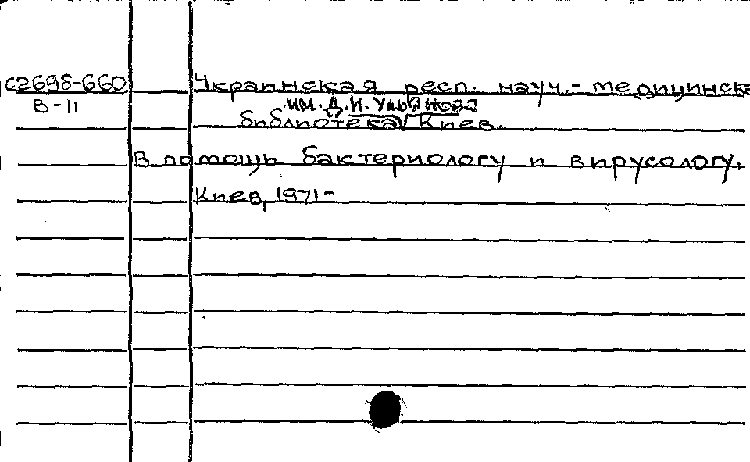 с2698-660 Украинская респ. науч.- медицинск
В-11 им. Д.И. Ульянова
библиотека/ Киев.
В помощь бактериологу и вирусологу.
Киев, 1971-